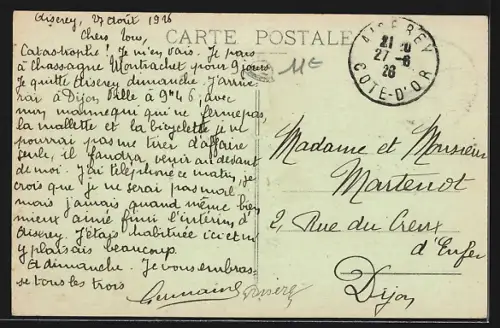 Aiserey, 27 août 1926
CARTE POSTALE
Chers Tous,
Catastrophe ! Je m'en vais. Je pars
à Chassagne Montrachet pour 9 jours
Je quitte Aiserey dimanche. J'arrive-
rai à Dijon Ville à 9h46 ; avec
mon mannequin qui ne ferme pas,
la mallette et la bicyclette je ne
pourrai pas me tirer d'affaire
seule, il faudra venir au devant
de moi. J'ai téléphoné ce matin, je
crois que je ne serai pas mal
mais j'aurais quand même bien
mieux aimé finir l'intérim d'
Aiserey. J'étais habituée ici et m'
y plaisais beaucoup.
A dimanche. Je vous embras-
se tous les trois
Germaine
AISEREY
27-8
26
COTE-D'OR
11E
Madame et Monsieur
Martenot
2, Rue du Creux
d'Enfer
Dijon